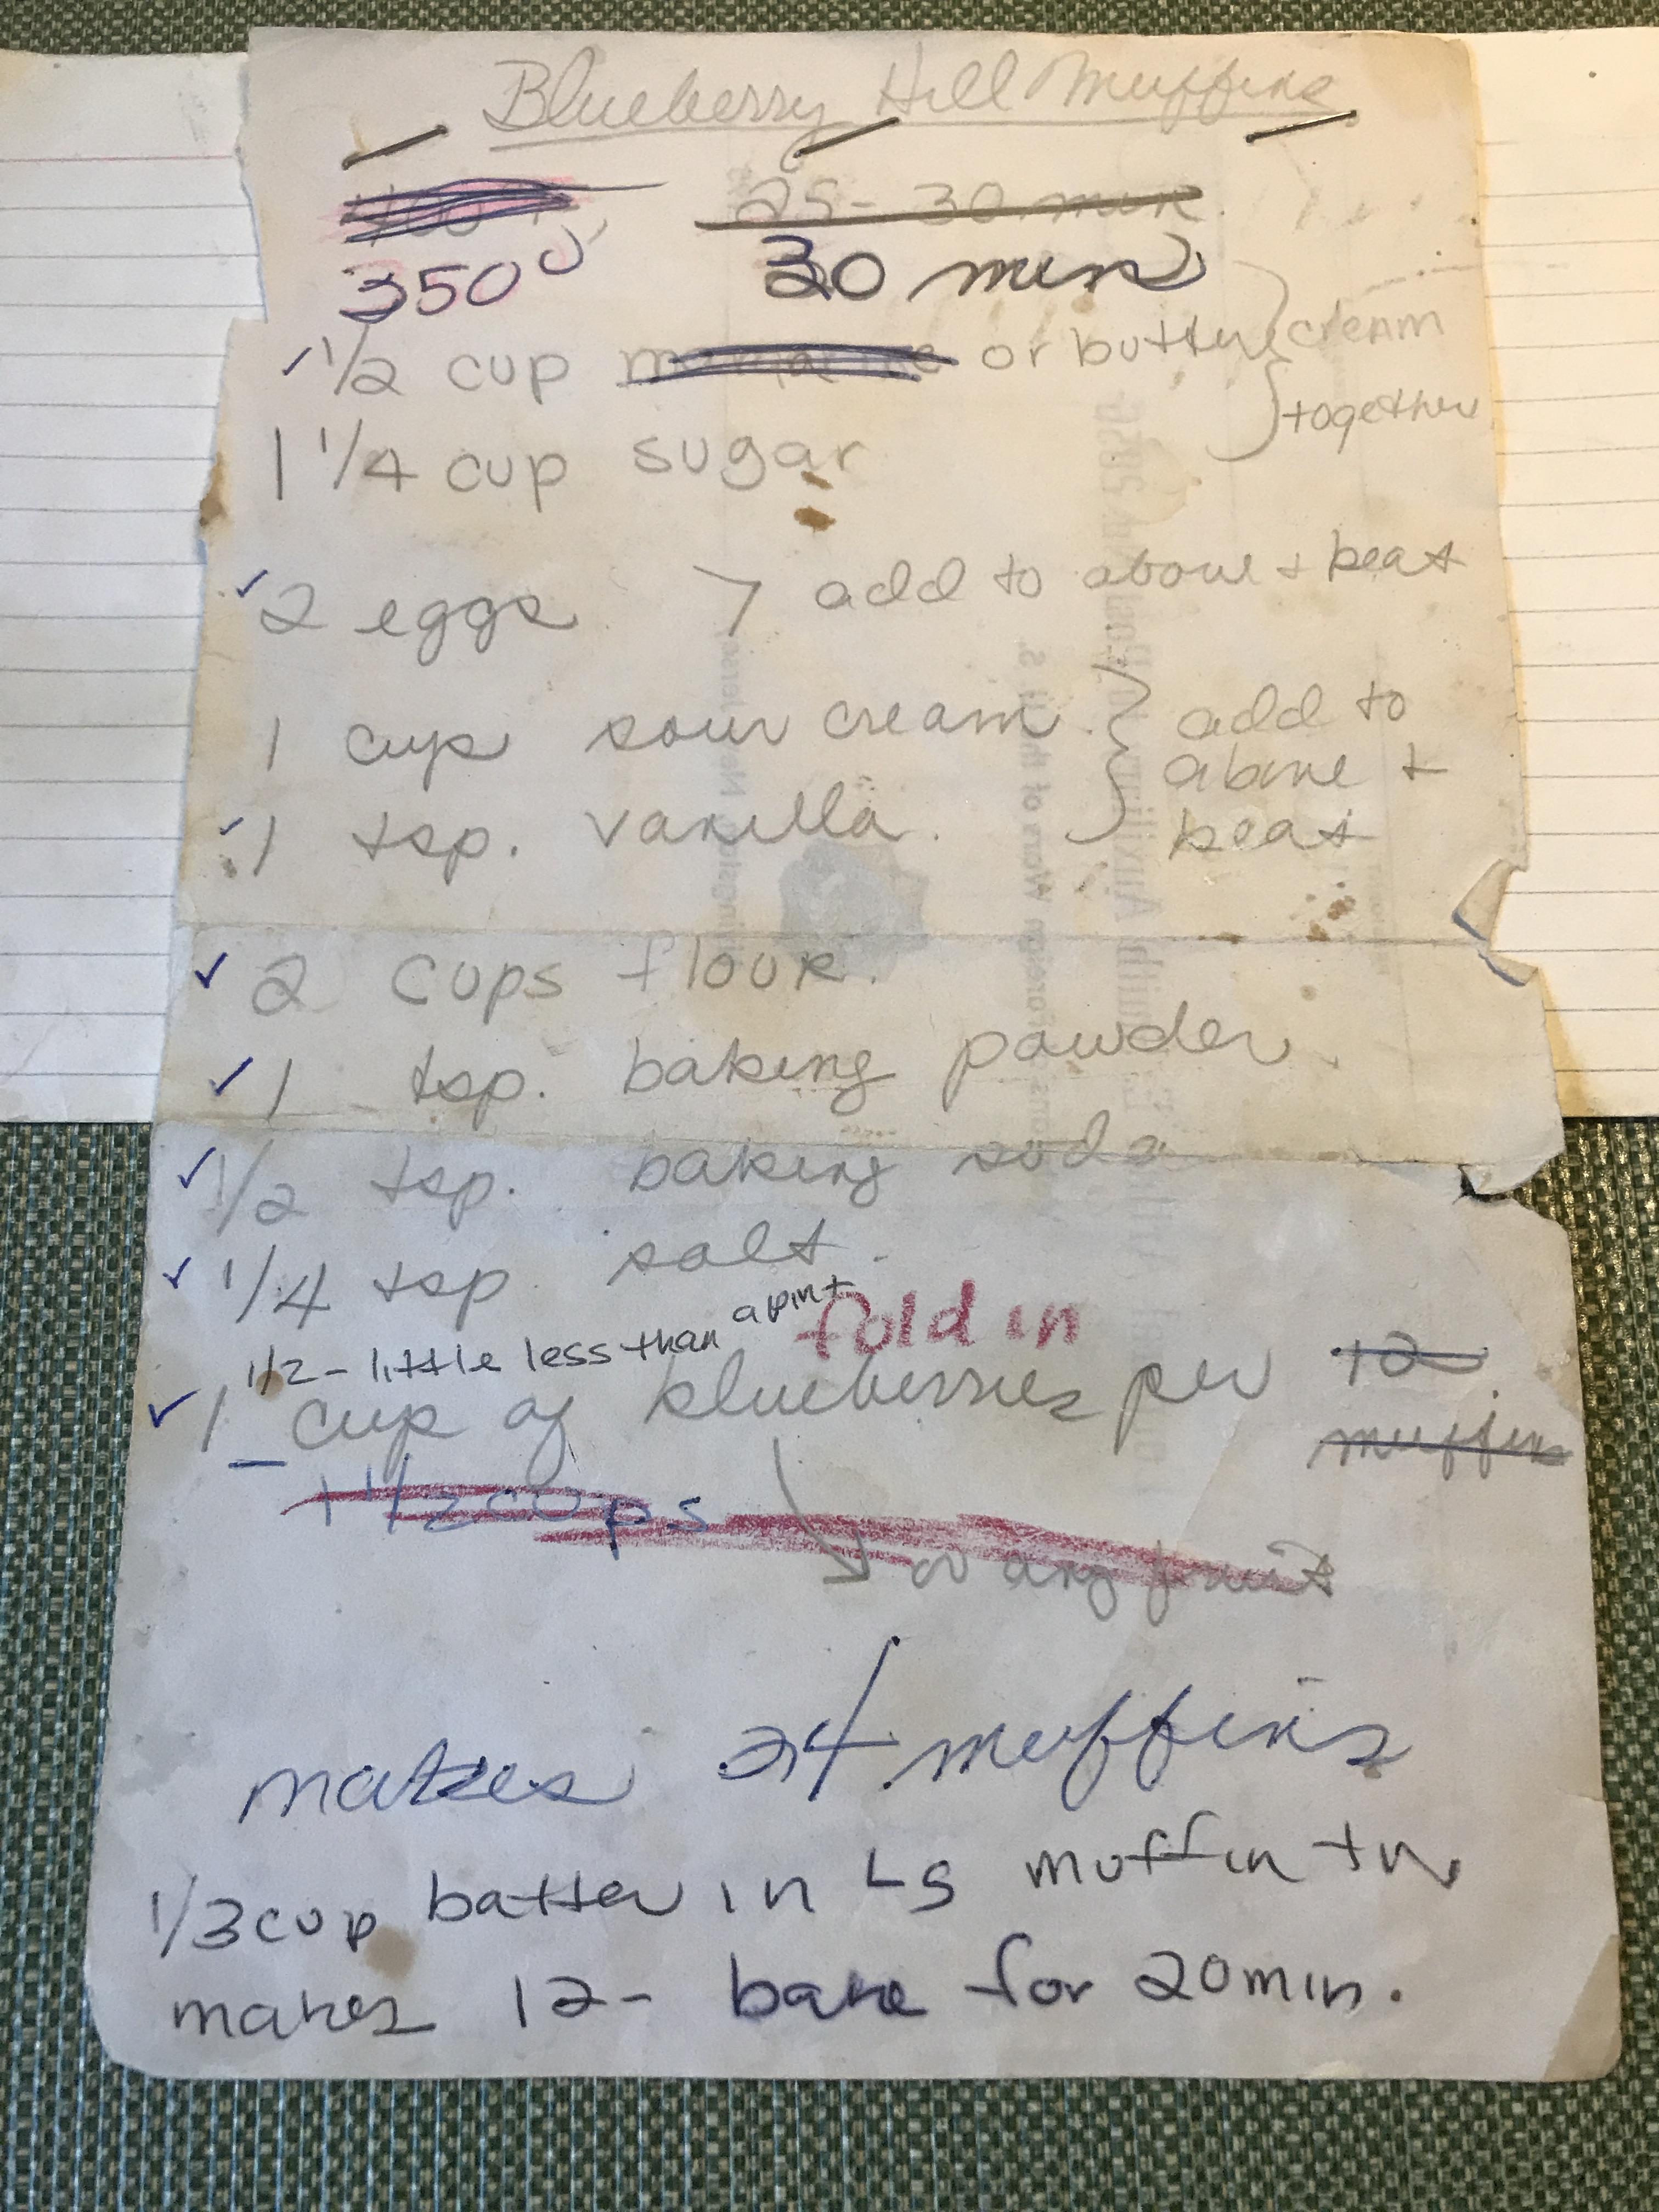 Blueberry Hill Muffins
25-30 min
350° 30 mins
1/2 cup margarine or butter } cream
1 1/4 cup sugar } together
2 eggs > add to above + beat
1 cup sour cream } add to
above +
1 tsp. vanilla. } beat
2 cups flour.
1 tsp. baking powder.
1/2 tsp. baking soda
1/4 tsp. salt.
1/2 - little less than a pint fold in
1 cup of blueberries per 12
muffins
1 1/2 cups
or any fruit
makes 24 muffins
1/3 cup batter in LS muffin tin
makes 12- bake for 20 min.